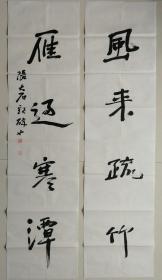 風来疏竹
雁过寒潭